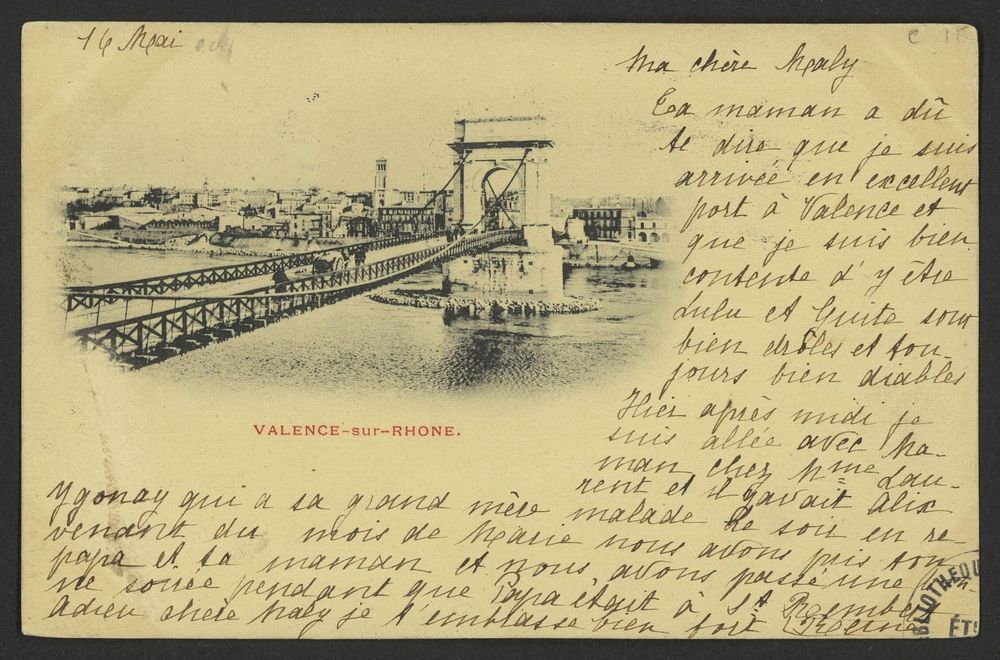 16 Mai
Ma chère Maly
Ta maman a dû
te dire que je suis
arrivée en excellent
port à Valence et
que je suis bien
contente d'y être
Lulu et Guite sont
bien drôles et tou-
jours bien diables
Hier après midi je
suis allée avec Ma-
man chez Mme Lau-
rent et il y avait Alix
Ygonay qui a sa grand mère malade Le soir en re-
venant du mois de Marie nous avons pris ton
papa et ta maman et nous avons passé une
soirée pendant que Papa était à St Rambert
Adieu chère Maly je t'embrasse bien fort
VALENCE-sur-RHONE.
BLIOTHEQU
ÉTS